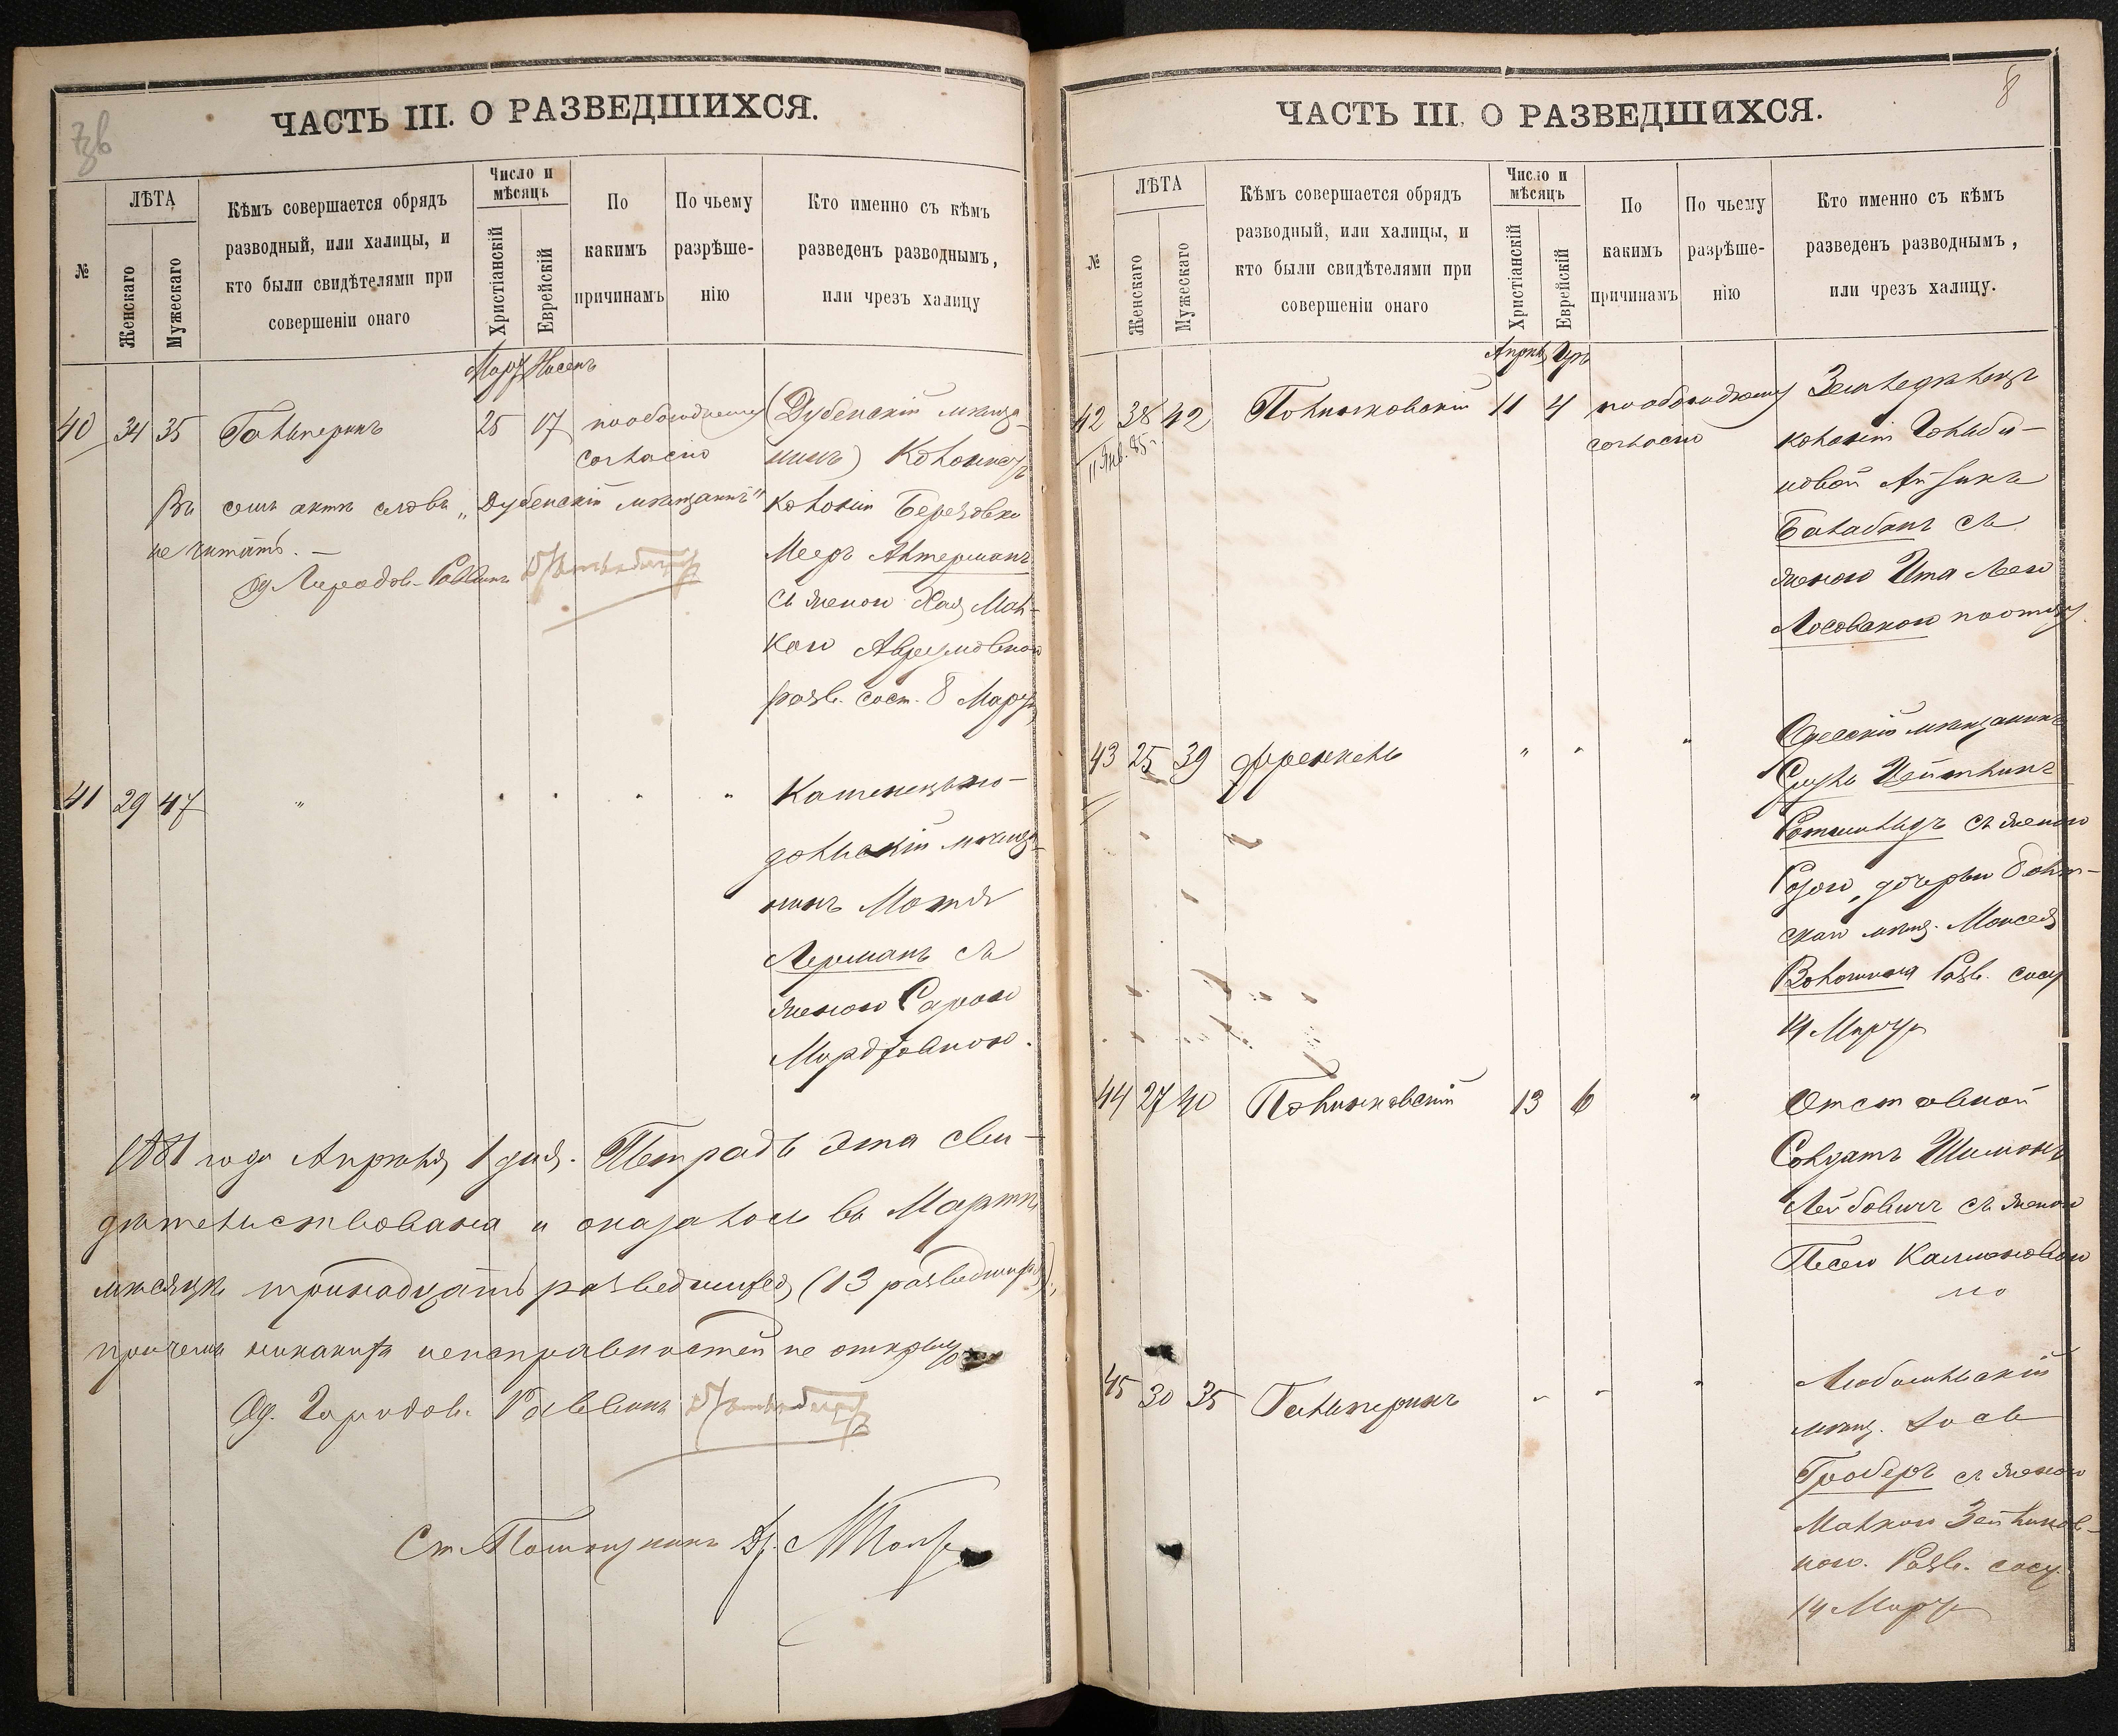 7зв
ЧАСТЬ III. О РАЗВЕДШИХСЯ.
№
ЛѢТА
Женскаго
Мужескаго
Кѣмъ совершается обрядъ
разводный, или халицы, и
кто были свидѣтелями при
совершеніи онаго
Число и
мѣсяцъ
Христіанскій
Еврейскій
По
какимъ
причинамъ
По чьему
разрѣше-
нію
Кто именно съ кѣмъ
разведенъ разводнымъ,
или чрезъ халицу
Мартъ Нисенъ
40 34 35 Гальперинъ 25 17 по обоюдному
согласію
(Дубенскій мѣща-
нинъ) Колонистъ
колоніи Березовки
Мееръ Антерманъ
съ женою Хая Мал-
кою Аврумовною
разв. сост. 8 Марта
Въ семъ актѣ слова „Дубенскій мѣщанинъ"
не читать. —
Од. Городов. Раввинъ
41 29 47 " " " " "
Каменецъ-по-
дольскій мѣща-
нинъ Мотя
Лерманъ съ
женою Сарою
Мордковною.
1881 года Апрѣля 1 дня. Тетрадь эта сви-
дѣтельствована и оказалось въ Мартѣ
мѣсяцѣ тринадцать разведшихся (13 разведшихся),
причемъ никакихъ неисправностей не открыто
Од. Городов. Раввинъ
8
ЧАСТЬ III. О РАЗВЕДШИХСЯ.
№
ЛѢТА
Женскаго
Мужескаго
Кѣмъ совершается обрядъ
разводный, или халицы, и
кто были свидѣтелями при
совершеніи онаго
Число и
мѣсяцъ
Христіанскій
Еврейскій
По
какимъ
причинамъ
По чьему
разрѣше-
нію
Кто именно съ кѣмъ
разведенъ разводнымъ,
или чрезъ халицу.
Апрѣль Іяръ
42 38 42 Полинковскій 11 4 по обоюдному
согласію
11 Янв. 85 г.
Земледѣлецъ
колоніи
Айзикъ
Балабанъ съ
женою Ита Лея
Лосовскою
43 25 39 Френкель " " "
Одесскій мѣщанинъ
Ротшильдъ съ женою
Розою, дочерью Балт-
скаго мѣщ. Моисея
Волошина Разв. сост.
14 Марта
44 27 40 Полинковскій 13 6 "
Отставной
Солдатъ Шимонъ
Лейбовичъ съ женою
Песею Калмановною
45 30 35 Гальперинъ " " "
мѣщ.
Гроберъ съ женою
Малкою Зейликов-
ною. Разв. сост.
14 Марта